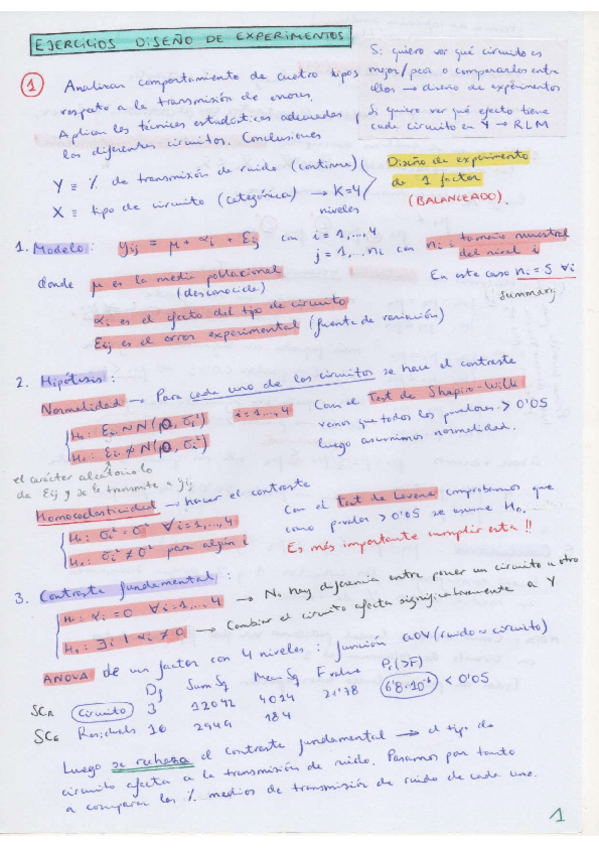 EJERCICIOS DISEÑO DE EXPERIMENTOS
Si quiero ver qué circuito es
mejor/peor o compararlos entre
ellos → diseño de experimentos
Si quiero ver qué efecto tiene
cada circuito en Y → RLM
1 Analizan comportamiento de cuatro tipos
respecto a la transmisión de errores.
Aplican las técnicas estadísticas adecuadas y
los diferentes circuitos. Conclusiones
Y ≡ % de transmisión de ruido (continua)
X ≡ tipo de circuito (categórica) → K=4
niveles
Diseño de experimento
de 1 factor
(BALANCEADO).
1. Modelo: yij = μ + αi + εij con i = 1,...,4
j = 1,...ni con ni: tamaño muestral
del nivel i
donde μ es la media poblacional
(desconocida)
En este caso ni = 5 ∀i
summary
αi es el efecto del tipo de circuito
εij es el error experimental (fuente de variación)
2. Hipótesis:
Normalidad → Para cada uno de los circuitos se hace el contraste
H0: εij ~ N(0, σi²) i=1,...,4
H1: εij ≁ N(0, σi²)
Con el Test de Shapiro-Wilk
vemos que todos los pvalores > 0'05
luego asumimos normalidad.
el carácter aleatorio lo
da εij y se lo transmite a yij
Homocedasticidad → hacer el contraste
H0: σi² = σ² ∀i=1,...,4
H1: σi² ≠ σ² para algún i
Con el Test de Levene comprobamos que
como pvalor > 0'05 se asume H0.
Es más importante cumplir esta !!
3. Contraste fundamental:
H0: αi = 0 ∀i=1,...,4 → No hay diferencia entre poner un circuito u otro
H1: ∃i | αi ≠ 0 → Cambiar el circuito afecta significativamente a Y
ANOVA de un factor con 4 niveles: función aov(ruido ~ circuito)
Df Sum Sq Mean Sq F value Pr(>F)
SCR Circuito 3 12042 4014 21'78 6'8·10⁻⁶ < 0'05
SCE Residuals 16 2949 184
Luego se rechaza el contraste fundamental → el tipo de
circuito afecta a la transmisión de ruido. Pasamos por tanto
a comparar los % medios de transmisión de ruido de cada uno.
1